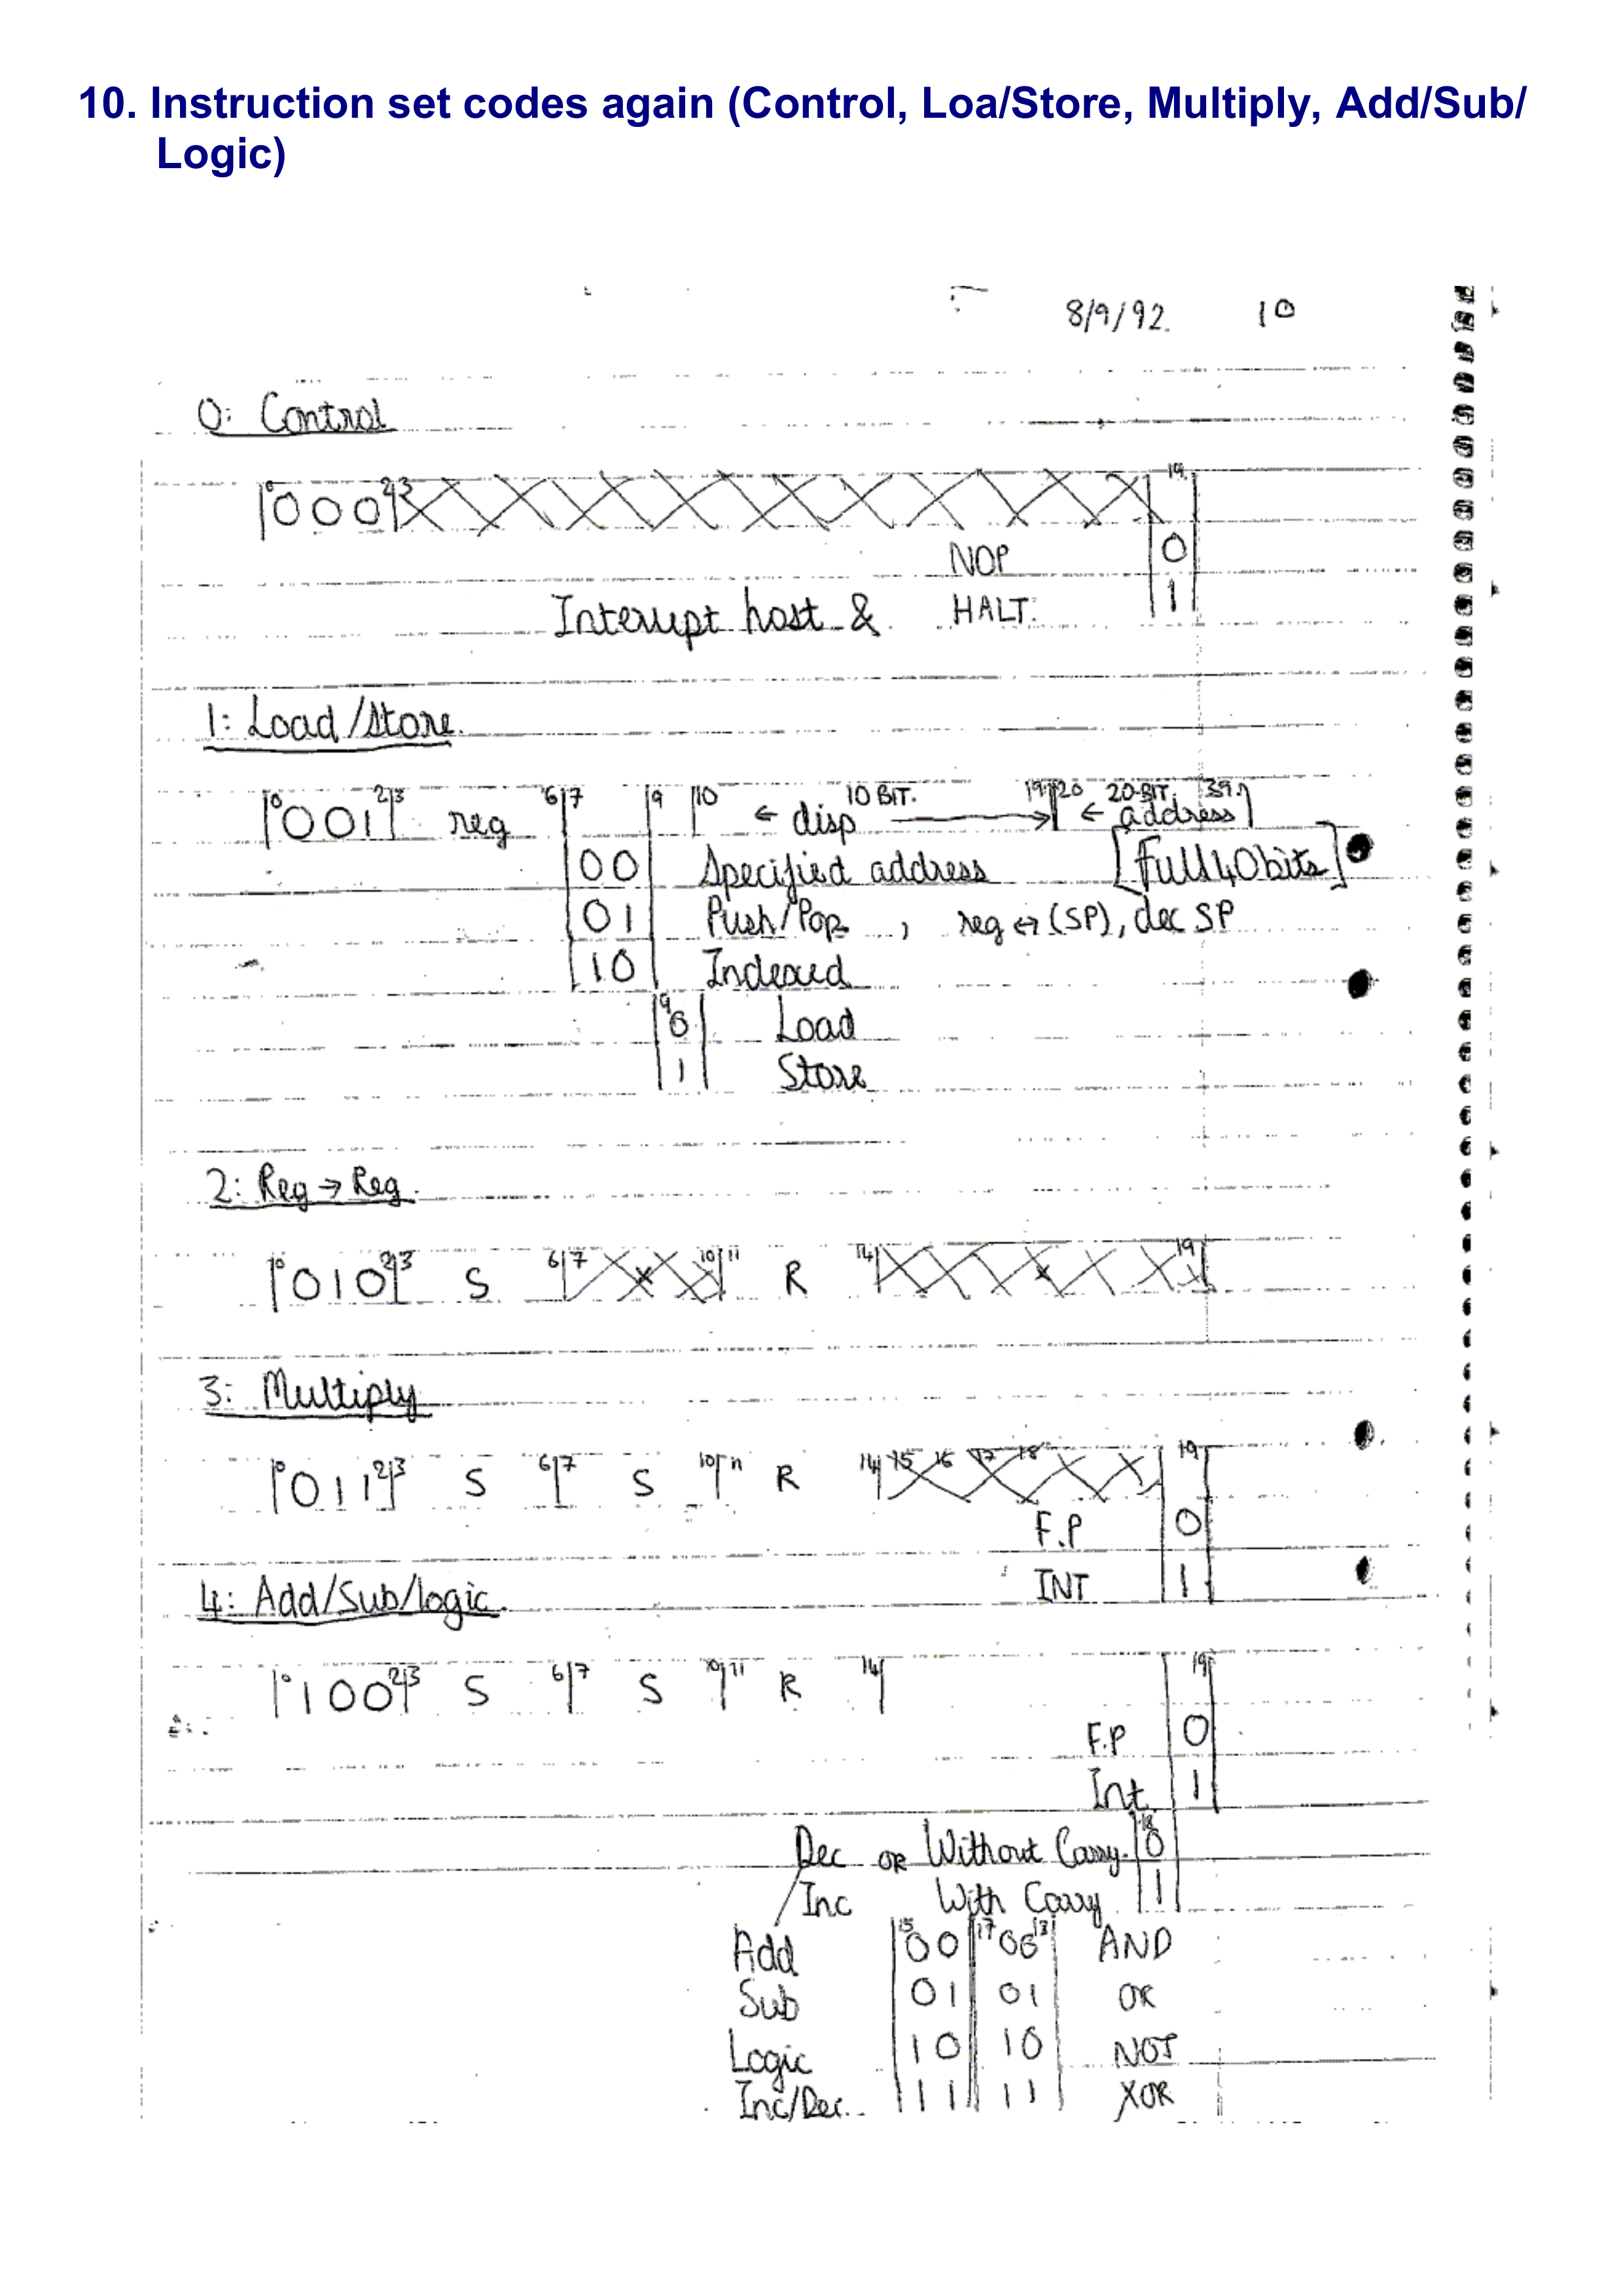 10. Instruction set codes again (Control, Loa/Store, Multiply, Add/Sub/
Logic)
8/9/92. 10
0: Control
0 000 2 3 19
NOP 0
Interrupt host & HALT. 1
1: Load/Store.
0 001 2 3 reg 6 7 9 10 ← disp 10 BIT. → 19 20 ← 20-BIT. address 39
00 Specified address [Full 40 bits]
01 Push/Pop , reg ↔ (SP), dec SP
10 Indexed
9 0 Load
1 Store
2: Reg → Reg.
0 010 2 3 S 6 7 10 11 R 14 19
3: Multiply
0 011 2 3 S 6 7 S 10 11 R 14 15 16 17 18 19
F.P 0
INT 1
4: Add/Sub/logic.
0 100 2 3 S 6 7 S 10 11 R 14 19
F.P 0
Int. 1
Dec OR Without Carry. 18 0
Inc With Carry 1
Add 15 00 17 00 18 AND
Sub 01 01 OR
Logic 10 10 NOT
Inc/Dec.. 11 11 XOR